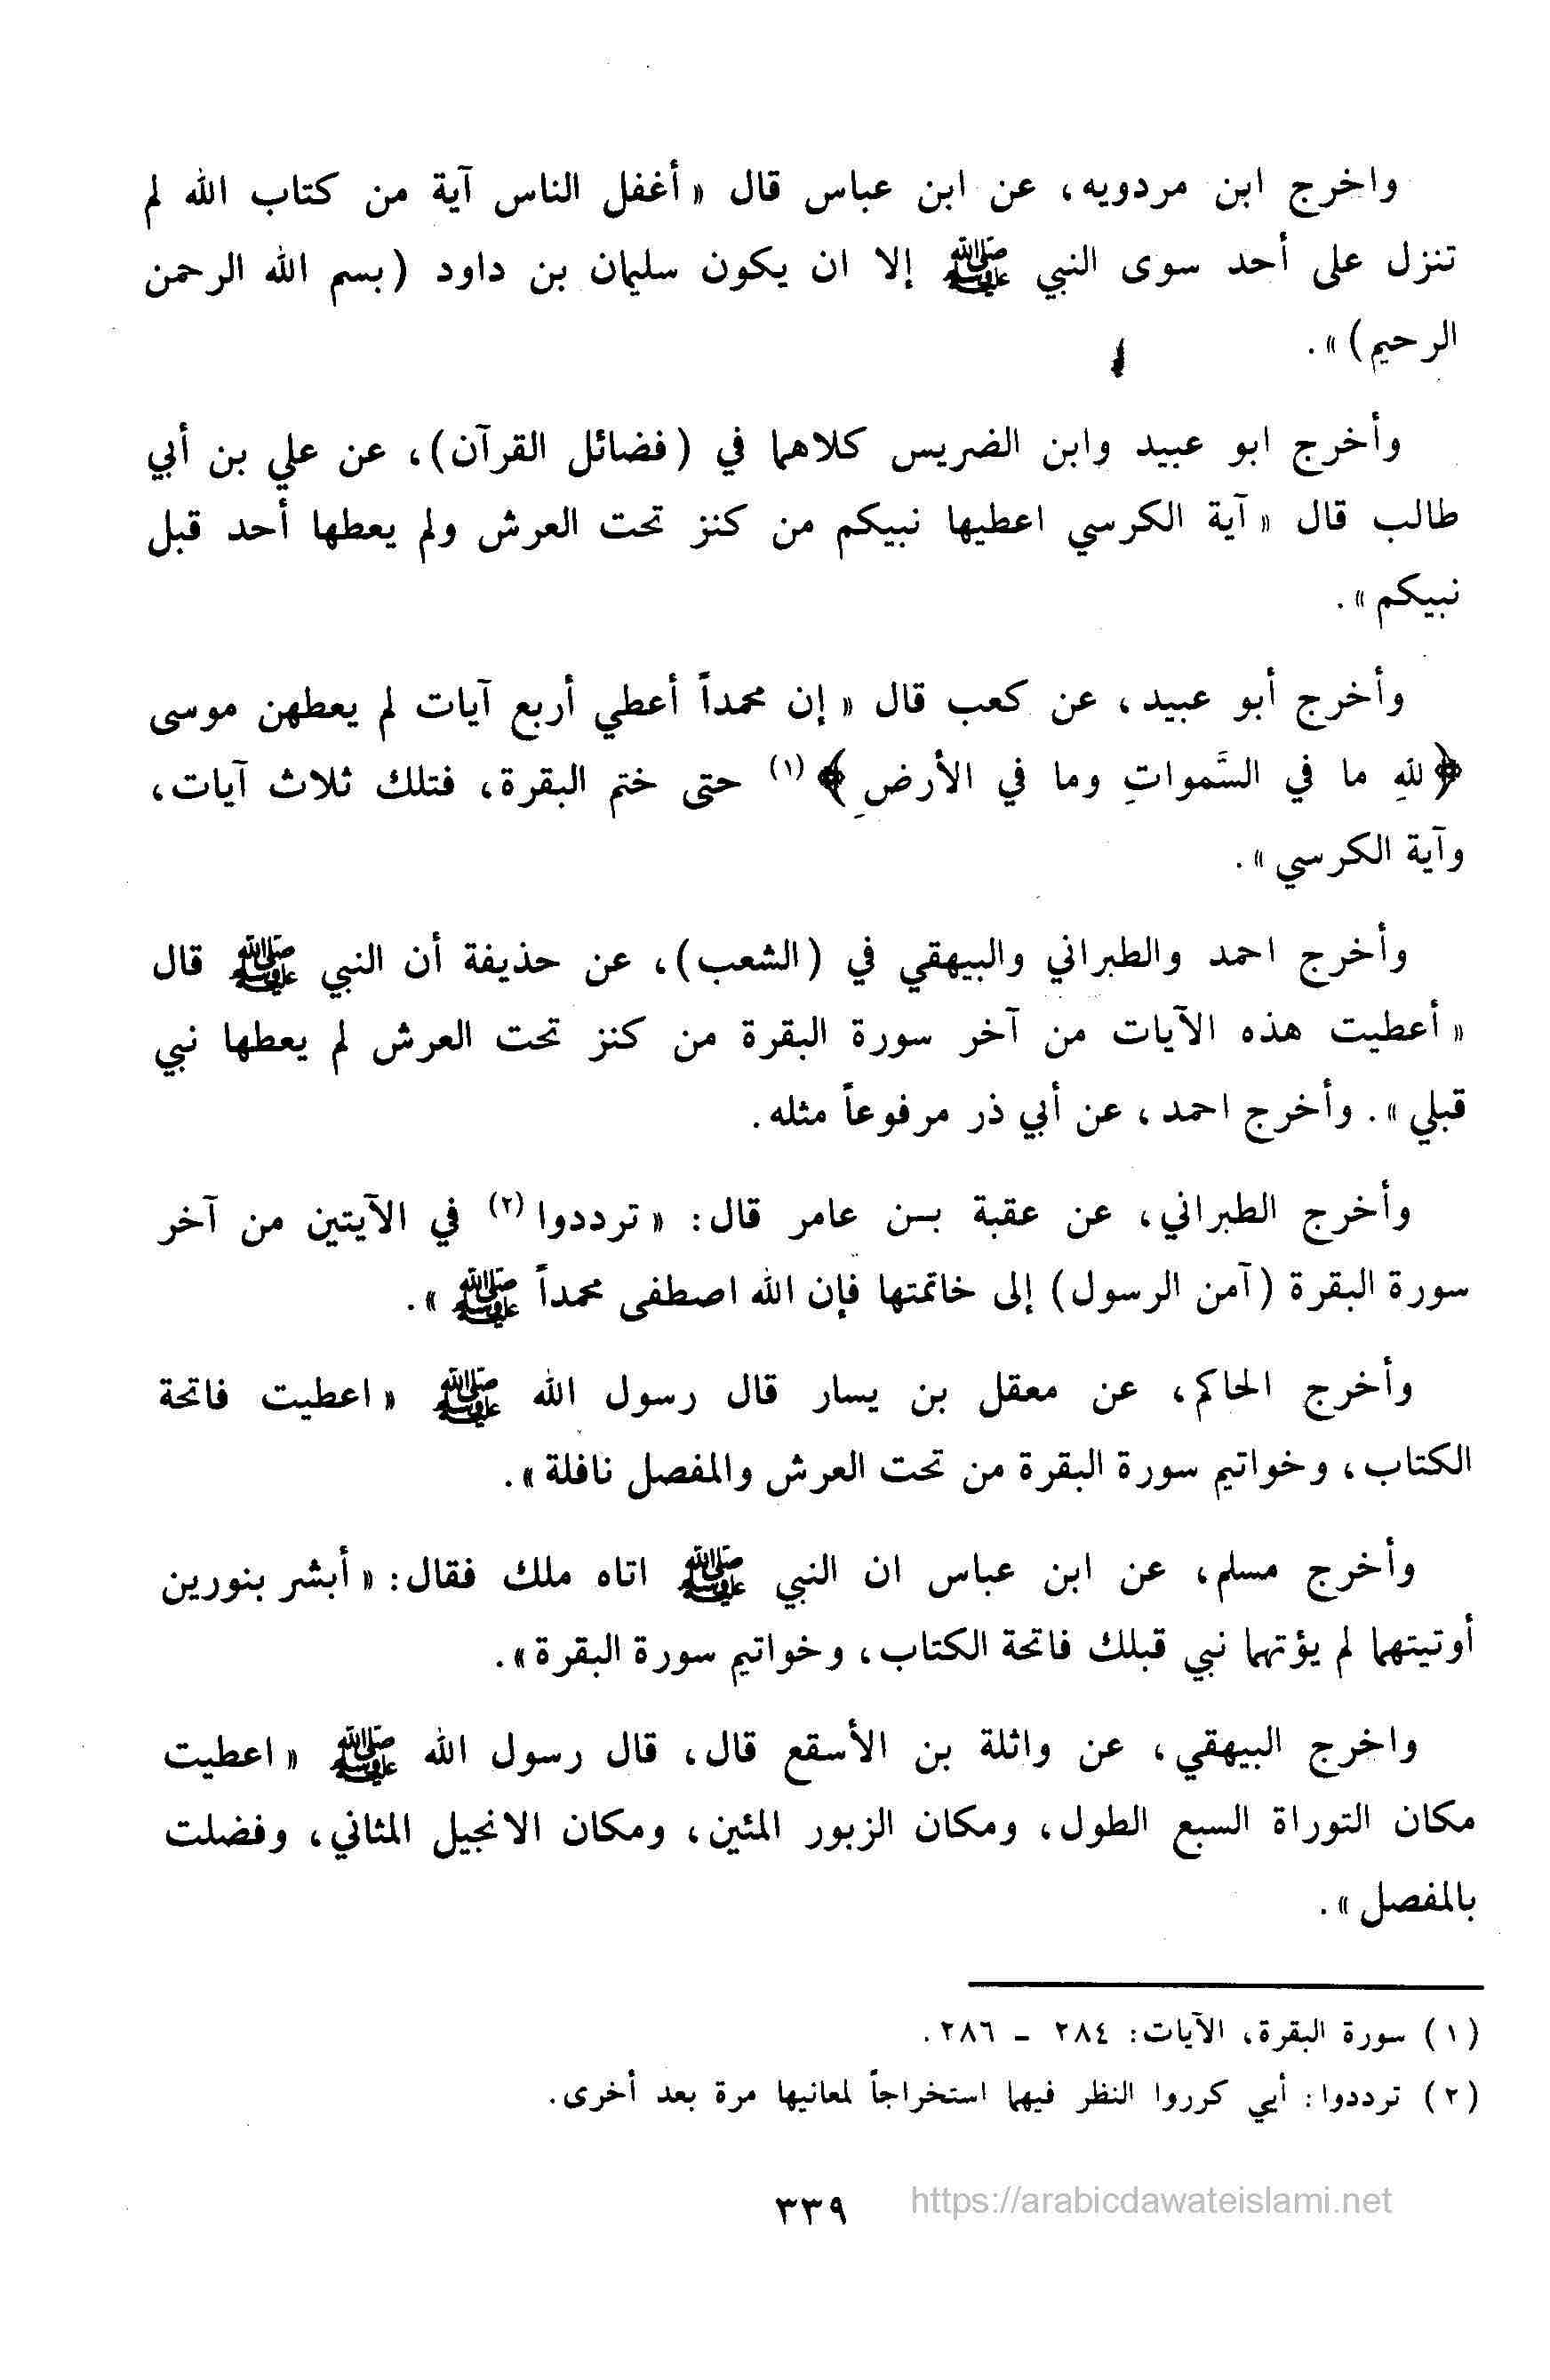 واخرج ابن مردويه، عن ابن عباس قال « أغفل الناس آية من كتاب الله لم
تنزل على أحد سوى النبي ﷺ إلا ان يكون سليمان بن داود (بسم الله الرحمن
الرحيم) ».
وأخرج ابو عبيد وابن الضريس كلاهما في (فضائل القرآن)، عن علي بن أبي
طالب قال « آية الكرسي اعطيها نبيكم من كنز تحت العرش ولم يعطها أحد قبل
نبيكم ».
وأخرج أبو عبيد، عن كعب قال « إن محمداً أعطي أربع آيات لم يعطهن موسى
﴿للهِ ما في السَّمواتِ وما في الأرضِ﴾ (١) حتى ختم البقرة، فتلك ثلاث آيات،
وآية الكرسي ».
وأخرج احمد والطبراني والبيهقي في (الشعب)، عن حذيفة أن النبي ﷺ قال
« أعطيت هذه الآيات من آخر سورة البقرة من كنز تحت العرش لم يعطها نبي
قبلي ». وأخرج احمد، عن أبي ذر مرفوعاً مثله.
وأخرج الطبراني، عن عقبة بن عامر قال: « ترددوا (٢) في الآيتين من آخر
سورة البقرة (آمن الرسول) إلى خاتمتها فإن الله اصطفى محمداً ﷺ ».
وأخرج الحاكم، عن معقل بن يسار قال رسول الله ﷺ « اعطيت فاتحة
الكتاب، وخواتيم سورة البقرة من تحت العرش والمفصل نافلة ».
وأخرج مسلم، عن ابن عباس ان النبي ﷺ اتاه ملك فقال: « أبشر بنورين
أوتيتهما لم يؤتهما نبي قبلك فاتحة الكتاب، وخواتيم سورة البقرة ».
واخرج البيهقي، عن واثلة بن الأسقع قال، قال رسول الله ﷺ « اعطيت
مكان التوراة السبع الطول، ومكان الزبور المئين، ومكان الانجيل المثاني، وفضلت
بالمفصل ».
(١) سورة البقرة، الآيات: ٢٨٤ - ٢٨٦.
(٢) ترددوا: أيي كرروا النظر فيهما استخراجاً لمعانيها مرة بعد أخرى.
٣٣٩
https://arabicdawateislami.net